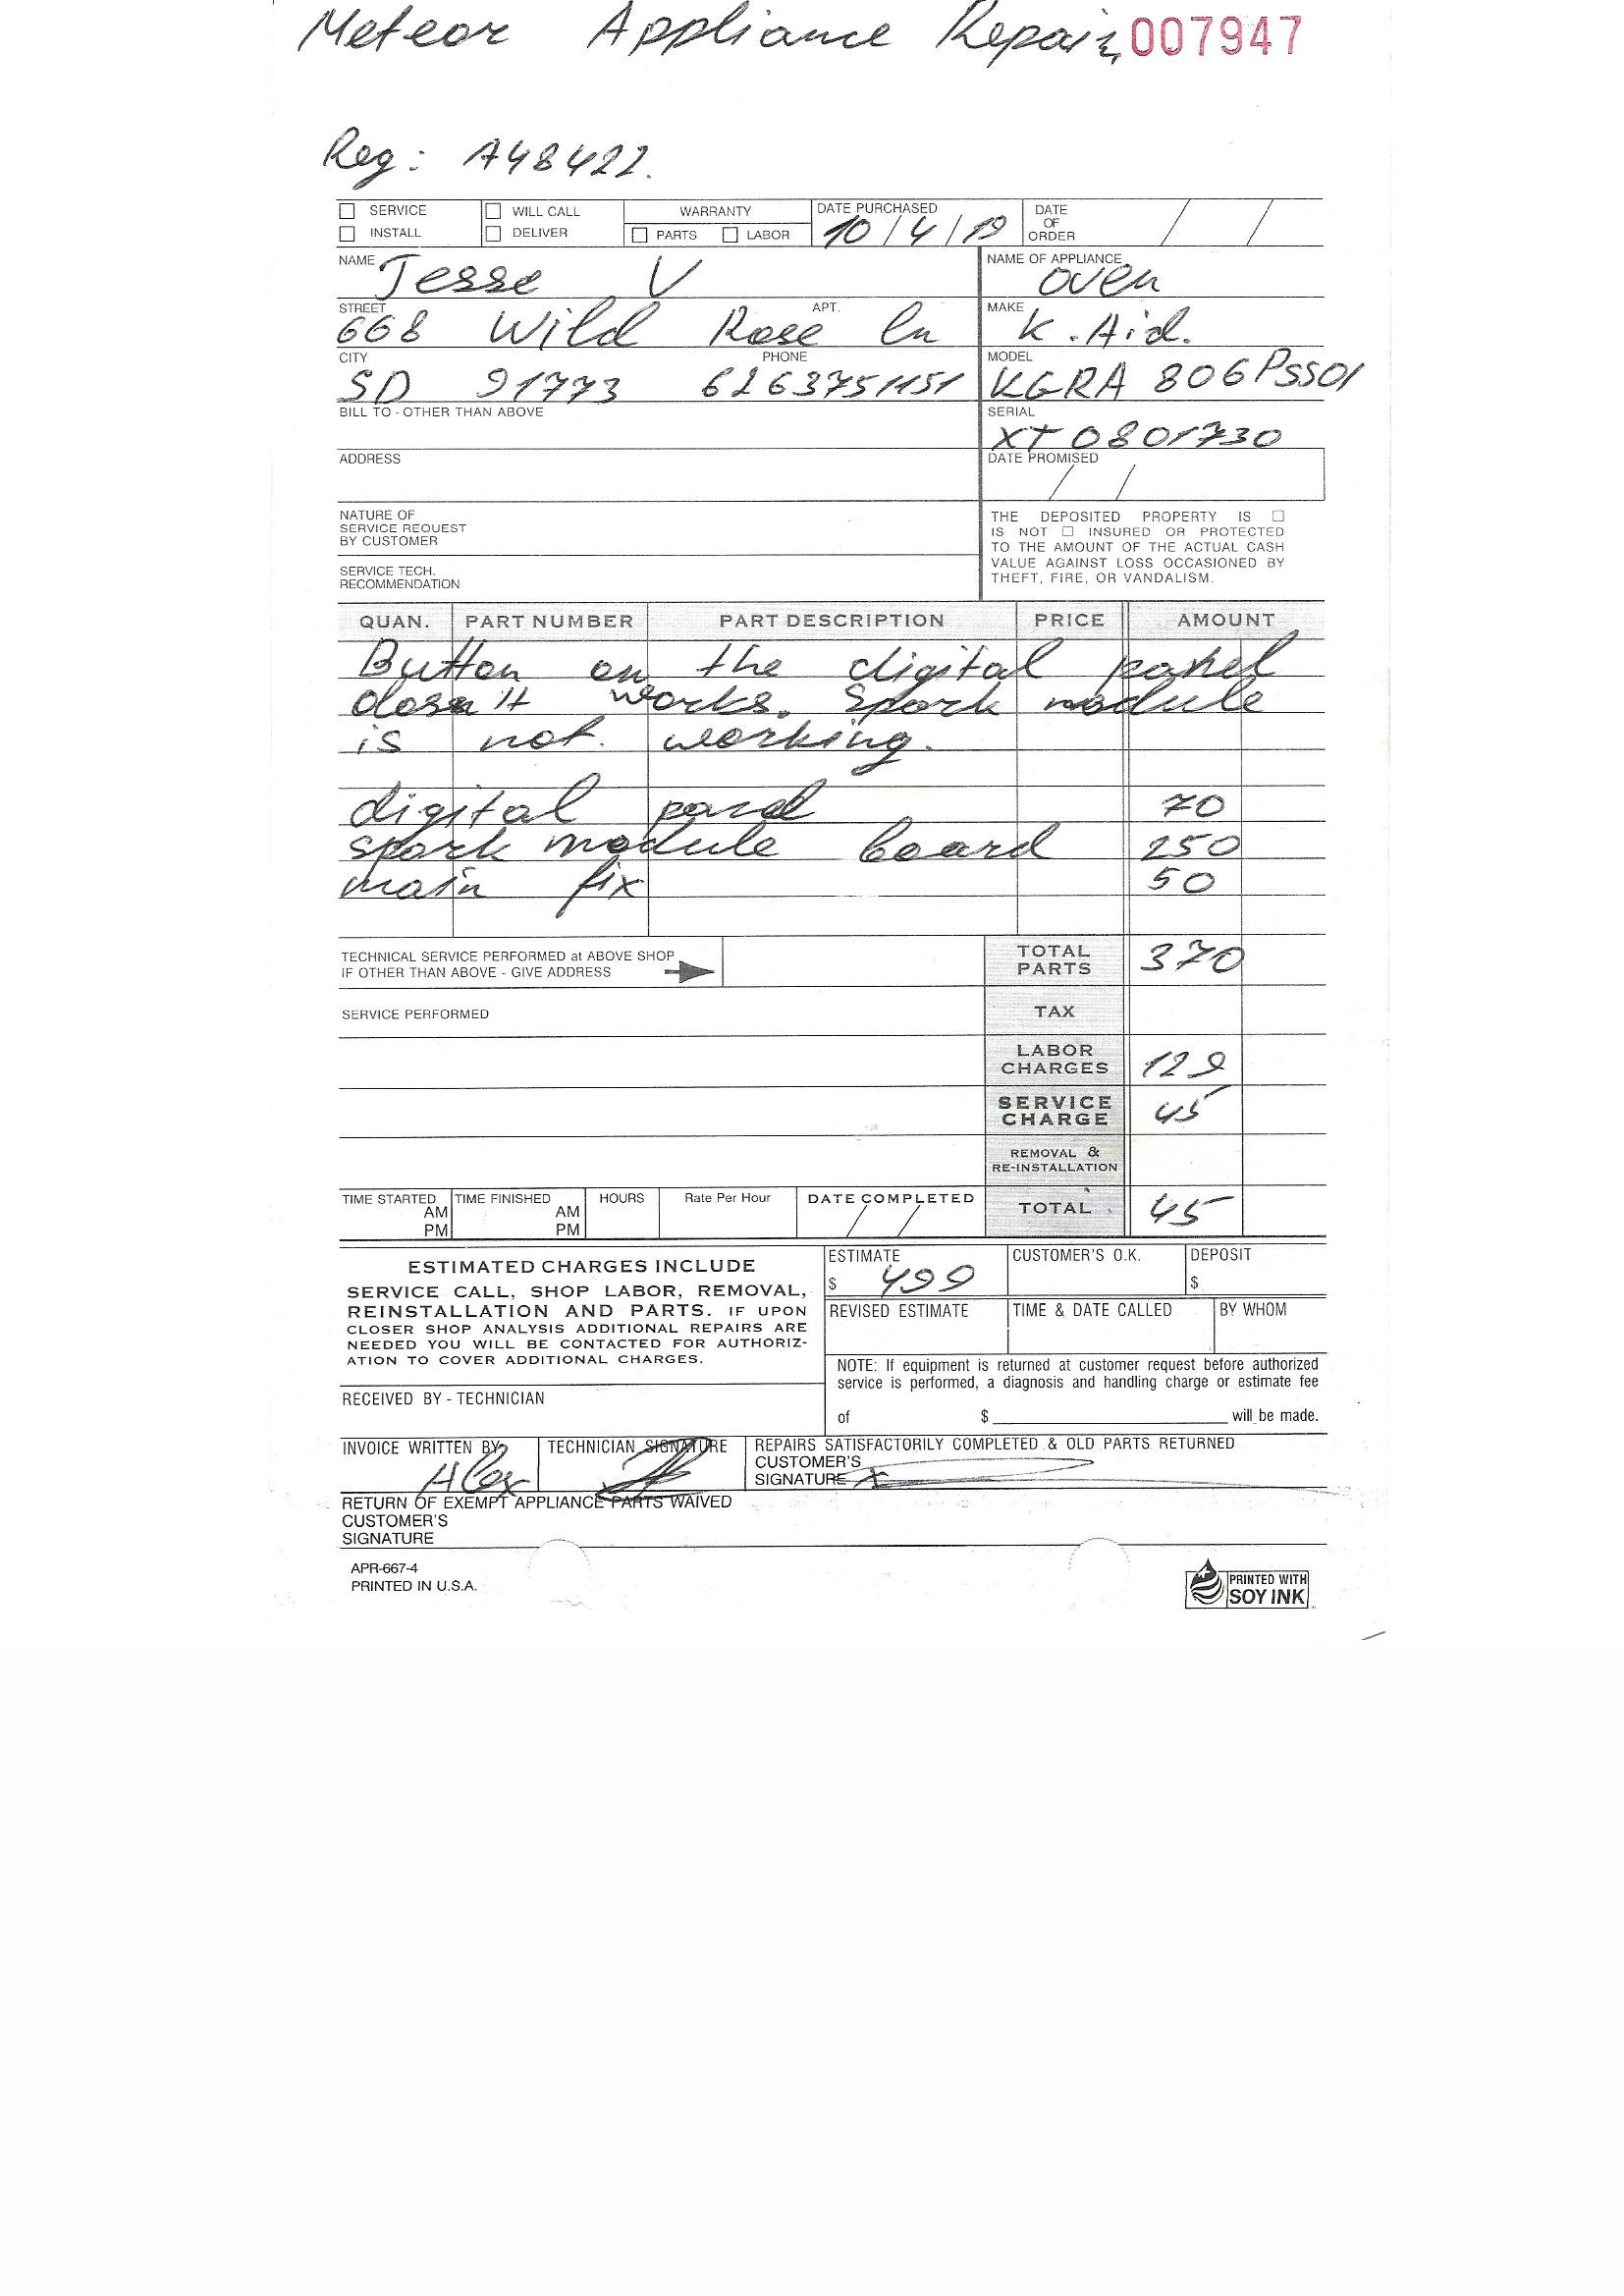 Meteor Appliance Repair 007947
Reg: A48422.
SERVICE WILL CALL WARRANTY DATE PURCHASED DATE OF ORDER
INSTALL DELIVER PARTS LABOR 10/4/19 / /
NAME Jesse V NAME OF APPLIANCE oven
STREET APT. MAKE
668 Wild Rose ln K.Aid.
CITY PHONE MODEL
SD 91773 6263751151 KGRA 806PSS01
BILL TO - OTHER THAN ABOVE SERIAL
XT0801730
ADDRESS DATE PROMISED
/ /
NATURE OF
SERVICE REQUEST
BY CUSTOMER
SERVICE TECH.
RECOMMENDATION
THE DEPOSITED PROPERTY IS
IS NOT INSURED OR PROTECTED
TO THE AMOUNT OF THE ACTUAL CASH
VALUE AGAINST LOSS OCCASIONED BY
THEFT, FIRE, OR VANDALISM.
QUAN. PART NUMBER PART DESCRIPTION PRICE AMOUNT
Button on the digital panel
dosn't works. Spark module
is not. working.
digital panel 70
spark module board 250
main fix 50
TECHNICAL SERVICE PERFORMED at ABOVE SHOP
IF OTHER THAN ABOVE - GIVE ADDRESS
TOTAL PARTS 370
SERVICE PERFORMED TAX
LABOR CHARGES 129
SERVICE CHARGE 45
REMOVAL & RE-INSTALLATION
TIME STARTED AM PM TIME FINISHED AM PM HOURS Rate Per Hour DATE COMPLETED / / TOTAL 45
ESTIMATED CHARGES INCLUDE
SERVICE CALL, SHOP LABOR, REMOVAL,
REINSTALLATION AND PARTS. IF UPON
CLOSER SHOP ANALYSIS ADDITIONAL REPAIRS ARE
NEEDED YOU WILL BE CONTACTED FOR AUTHORIZ-
ATION TO COVER ADDITIONAL CHARGES.
ESTIMATE CUSTOMER'S O.K. DEPOSIT
$ 499 $
REVISED ESTIMATE TIME & DATE CALLED BY WHOM
NOTE: If equipment is returned at customer request before authorized
service is performed, a diagnosis and handling charge or estimate fee
of $ will be made.
RECEIVED BY - TECHNICIAN
INVOICE WRITTEN BY TECHNICIAN SIGNATURE REPAIRS SATISFACTORILY COMPLETED & OLD PARTS RETURNED
Alex CUSTOMER'S
SIGNATURE X
RETURN OF EXEMPT APPLIANCE PARTS WAIVED
CUSTOMER'S
SIGNATURE
APR-667-4
PRINTED IN U.S.A.
PRINTED WITH
SOY INK